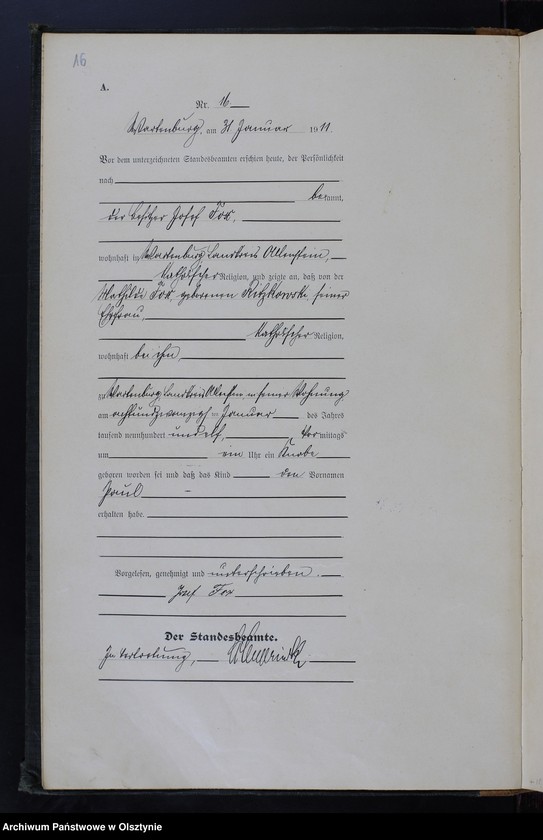 16
A.
Nr. 16
Wartenburg, am 31 Januar 1911
Vor dem unterzeichneten Standesbeamten erschien heute, der Persönlichkeit
nach
bekannt,
der Besitzer Josef Fox,
wohnhaft in Wartenburg Landkreis Allenstein,
katholischer Religion, und zeigte an, daß von der
Mathilde Fox geborenen Ritzkowski seiner
Ehefrau,
katholischer Religion,
wohnhaft bei ihm,
zu Wartenburg Landkreis Allenstein in seiner Wohnung
am achtundzwanzigsten Januar des Jahres
tausend neunhundert und elf, Vormittags
um ein Uhr ein Knabe
geboren worden sei und daß das Kind den Vornamen
Paul
erhalten habe.
Vorgelesen, genehmigt und unterschrieben.
Josef Fox
Der Standesbeamte.
In Vertretung,
Archiwum Państwowe w Olsztynie